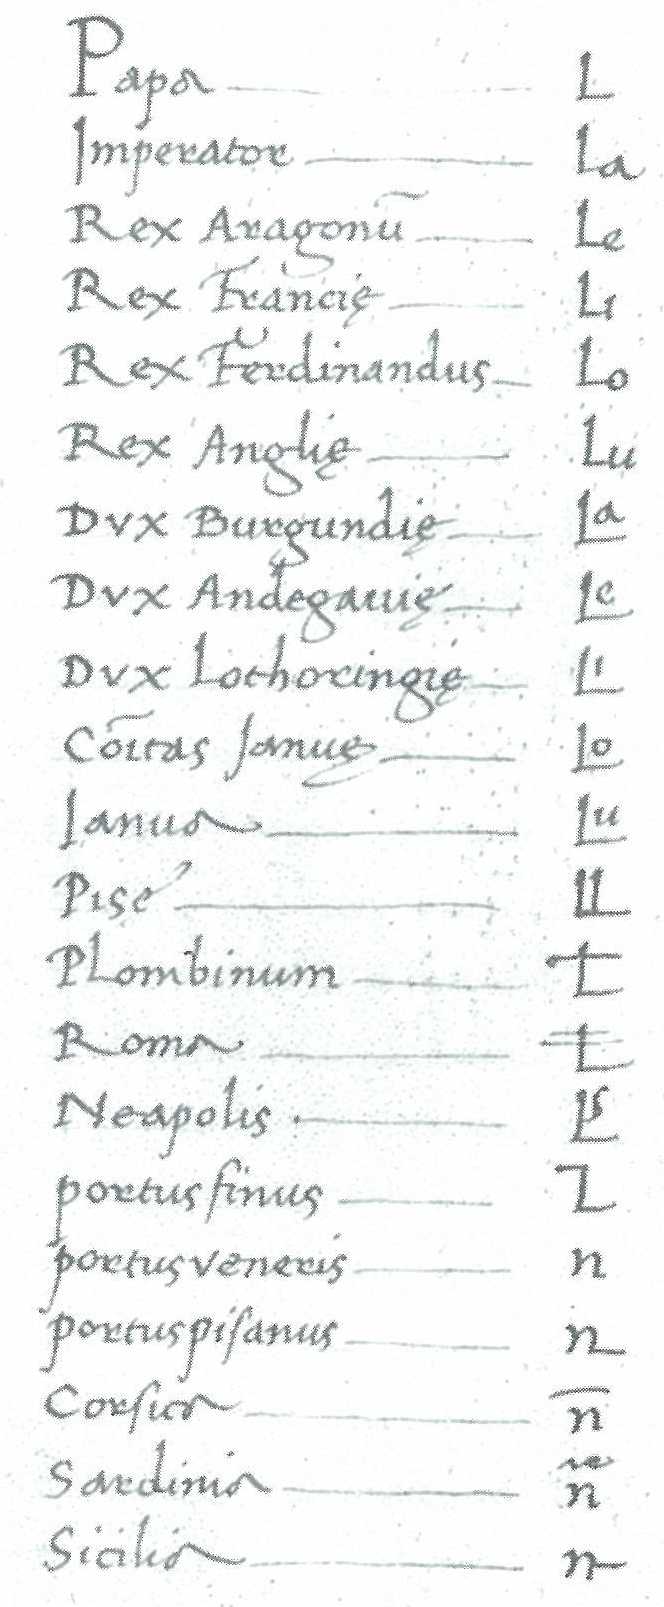 Papa L
Imperator La
Rex Aragonū Le
Rex Francię Li
Rex Ferdinandus Lo
Rex Anglię Lu
Dvx Burgundię La
Dvx Andegauię Le
Dvx Lothoringię Li
Cōitas Ianuę Lo
Ianua Lu
Pise LL
PLombinum L
Roma L
Neapolis L
portus finus L
portus veneris n
portus pisanus n
Corsica n̄
Sardinia n
Sicilia n